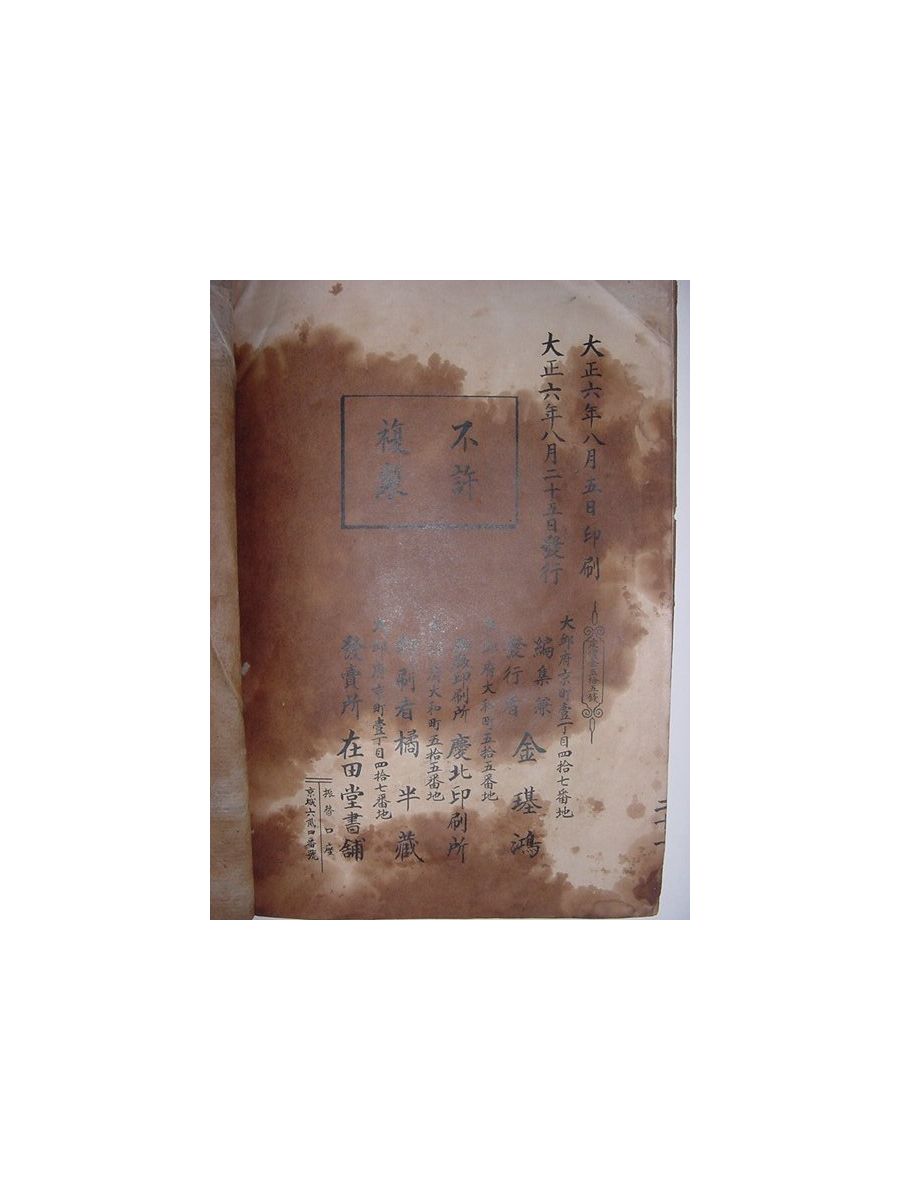 大正六年八月五日印刷
大正六年八月二十五日發行
不許
複製
金五拾五錢
大邱府京町壹丁目四拾七番地
編集兼
發行者
金璂鴻
邱府大和町五拾五番地
印刷所 慶北印刷所
府大和町五拾五番地
印刷者 橘半藏
大邱府京町壹丁目四拾七番地
發賣所 在田堂書舖
振替口座
京城六貳四番號